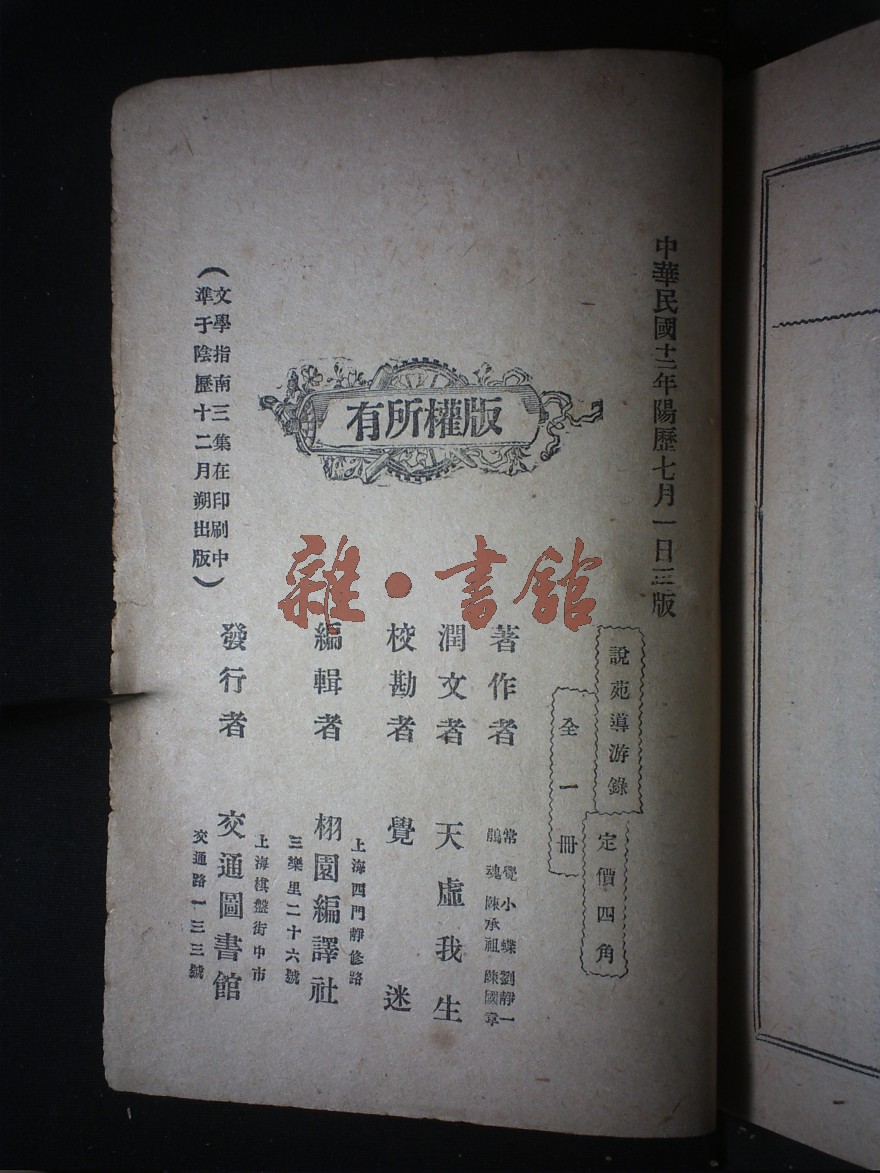 中華民國十二年陽歷七月一日三版
說苑導游錄
定價四角
全一冊
版權所有
著作者
常覺 小蝶 劉靜一
鵑魂 陳承祖 陳國章
潤文者 天虛我生
校勘者 覺迷
編輯者 栩園編譯社
上海西門靜修路
三樂里二十六號
發行者 交通圖書館
上海棋盤街中市
交通路一三三號
（文學指南三集在印刷中
準于陰歷十二月朔出版）
雜·書館